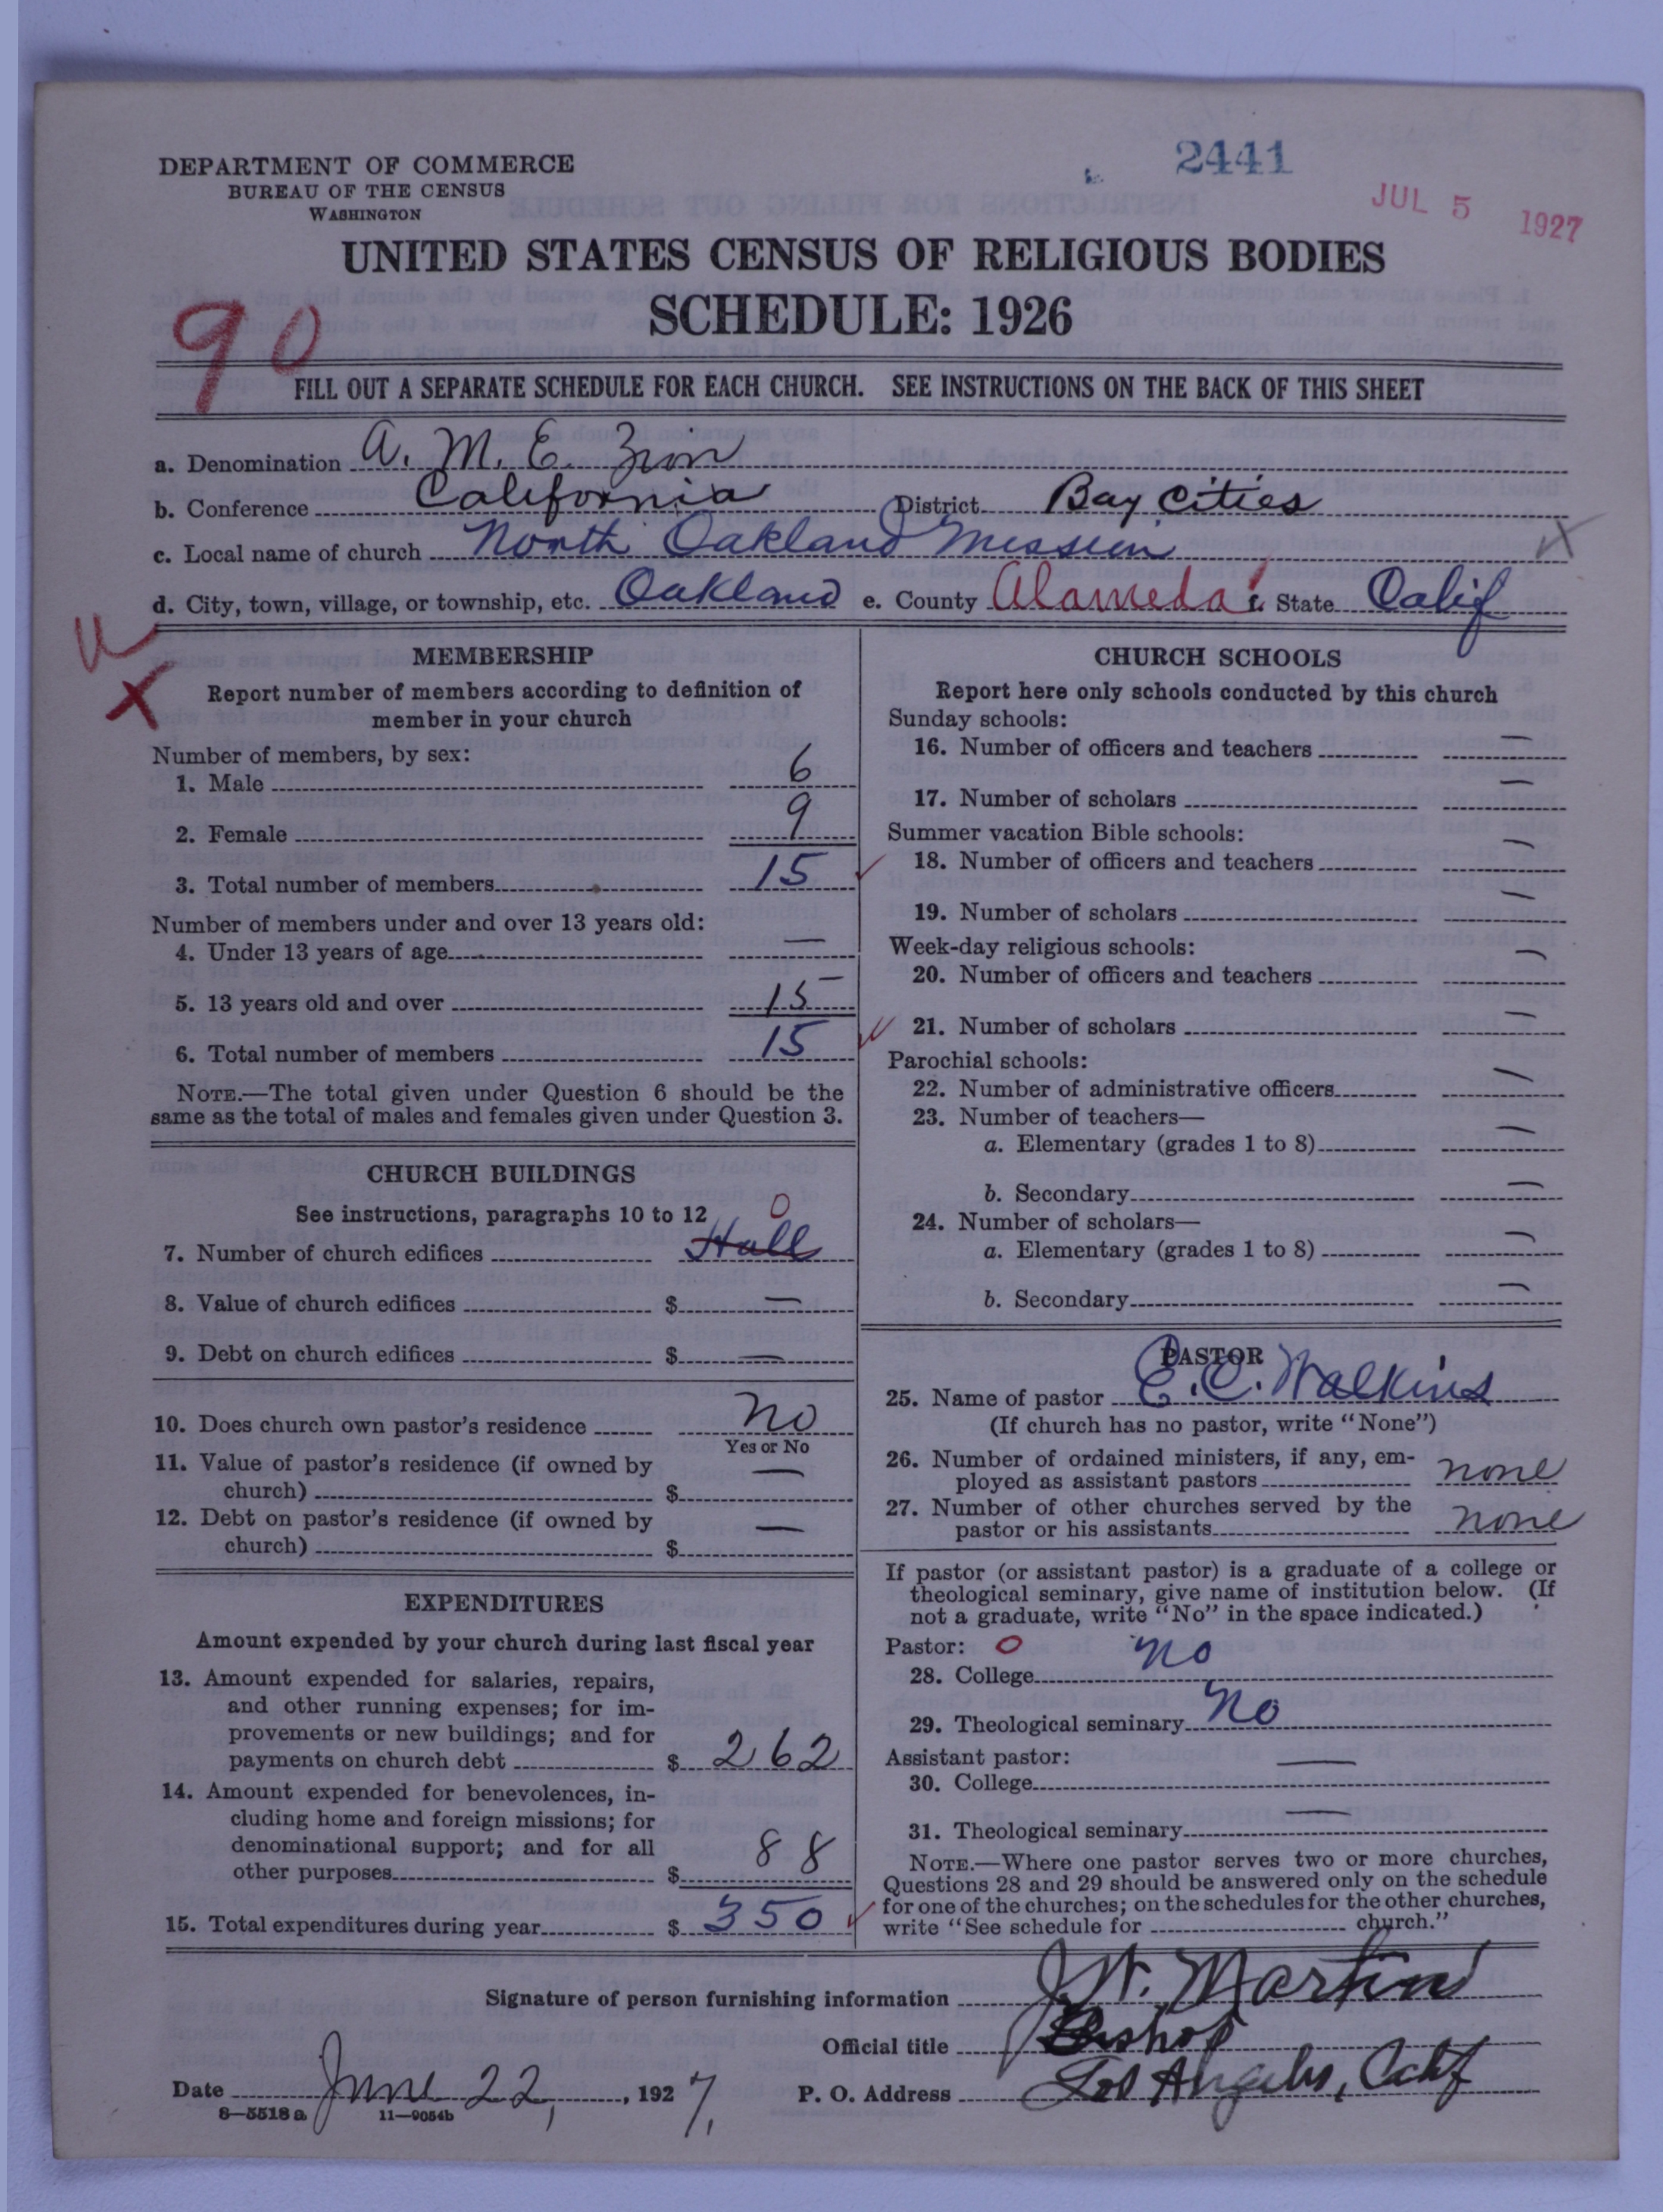 2441
JUL 5 1927
DEPARTMENT OF COMMERCE
BUREAU OF THE CENSUS
WASHINGTON
UNITED STATES CENSUS OF RELIGIOUS BODIES
SCHEDULE: 1926
90
FILL OUT A SEPARATE SCHEDULE FOR EACH CHURCH. SEE INSTRUCTIONS ON THE BACK OF THIS SHEET
a. Denomination A. M. E. Zion
b. Conference California District Bay Cities
c. Local name of church North Oakland Mission
d. City, town, village, or township, etc. Oakland e. County Alameda f. State Calif
MEMBERSHIP
Report number of members according to definition of
member in your church
Number of members, by sex:
1. Male 6
2. Female 9
3. Total number of members 15
Number of members under and over 13 years old:
4. Under 13 years of age —
5. 13 years old and over 15
6. Total number of members 15
NOTE.—The total given under Question 6 should be the
same as the total of males and females given under Question 3.
CHURCH BUILDINGS
See instructions, paragraphs 10 to 12
0
7. Number of church edifices Hall
8. Value of church edifices $ —
9. Debt on church edifices $ —
10. Does church own pastor's residence No
Yes or No
11. Value of pastor's residence (if owned by
church) $ —
12. Debt on pastor's residence (if owned by
church) $ —
EXPENDITURES
Amount expended by your church during last fiscal year
13. Amount expended for salaries, repairs,
and other running expenses; for im-
provements or new buildings; and for
payments on church debt $ 262
14. Amount expended for benevolences, in-
cluding home and foreign missions; for
denominational support; and for all
other purposes $ 88
15. Total expenditures during year $ 350
CHURCH SCHOOLS
Report here only schools conducted by this church
Sunday schools:
16. Number of officers and teachers —
17. Number of scholars —
Summer vacation Bible schools:
18. Number of officers and teachers —
19. Number of scholars —
Week-day religious schools:
20. Number of officers and teachers —
21. Number of scholars —
Parochial schools:
22. Number of administrative officers —
23. Number of teachers—
a. Elementary (grades 1 to 8) —
b. Secondary —
24. Number of scholars—
a. Elementary (grades 1 to 8) —
b. Secondary —
PASTOR
25. Name of pastor E. C. Walkins
(If church has no pastor, write "None")
26. Number of ordained ministers, if any, em-
ployed as assistant pastors none
27. Number of other churches served by the
pastor or his assistants none
If pastor (or assistant pastor) is a graduate of a college or
theological seminary, give name of institution below. (If
not a graduate, write "No" in the space indicated.)
Pastor: 0
28. College No
29. Theological seminary No
Assistant pastor:
30. College —
31. Theological seminary —
NOTE.—Where one pastor serves two or more churches,
Questions 28 and 29 should be answered only on the schedule
for one of the churches; on the schedules for the other churches,
write "See schedule for church."
Signature of person furnishing information J. W. Martin
Official title Bishop
Date June 22, 1927, P. O. Address Los Angeles, Calif
8—5518 a 11—9054b